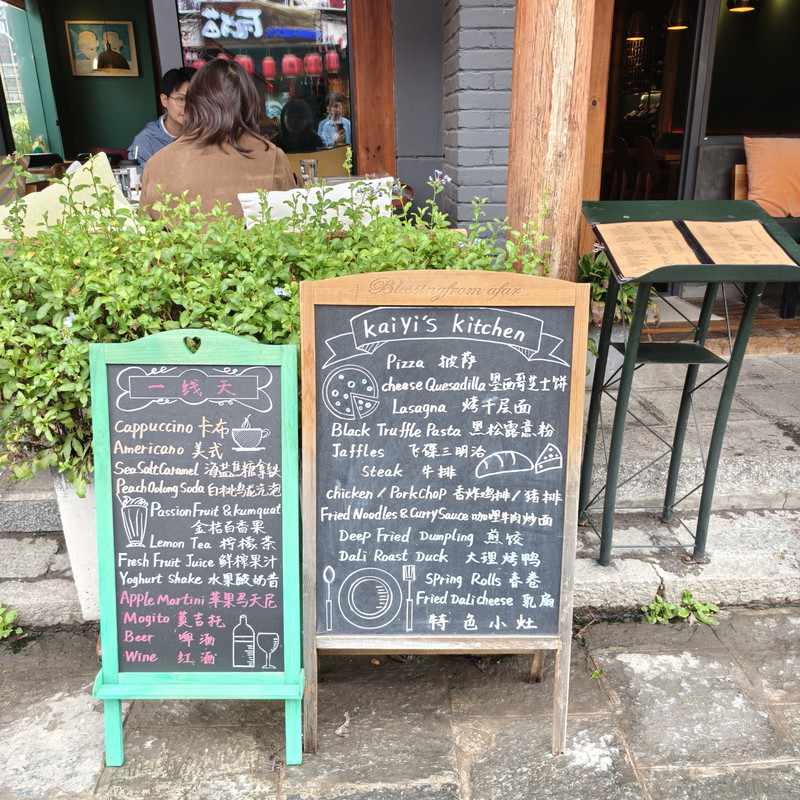 一线天
Cappuccino 卡布
Americano 美式
Sea Salt Caramel 海盐焦糖拿铁
Peach Oolong Soda 白桃乌龙气泡
Passion Fruit & kumquat
金桔百香果
Lemon Tea 柠檬茶
Fresh Fruit Juice 鲜榨果汁
Yoghurt Shake 水果酸奶昔
Apple Martini 苹果马天尼
Mogito 莫吉托
Beer 啤酒
Wine 红酒
Blessing from afar
kaiyi's kitchen
Pizza 披萨
cheese Quesadilla 墨西哥芝士饼
Lasagna 烤千层面
Black Truffle Pasta 黑松露意粉
Jaffles 飞碟三明治
Steak 牛排
chicken / Pork chop 香炸鸡排/猪排
Fried Noodles & Curry Sauce 咖喱牛肉炒面
Deep Fried Dumpling 煎饺
Dali Roast Duck 大理烤鸭
Spring Rolls 春卷
Fried Dali cheese 乳扇
特色小灶